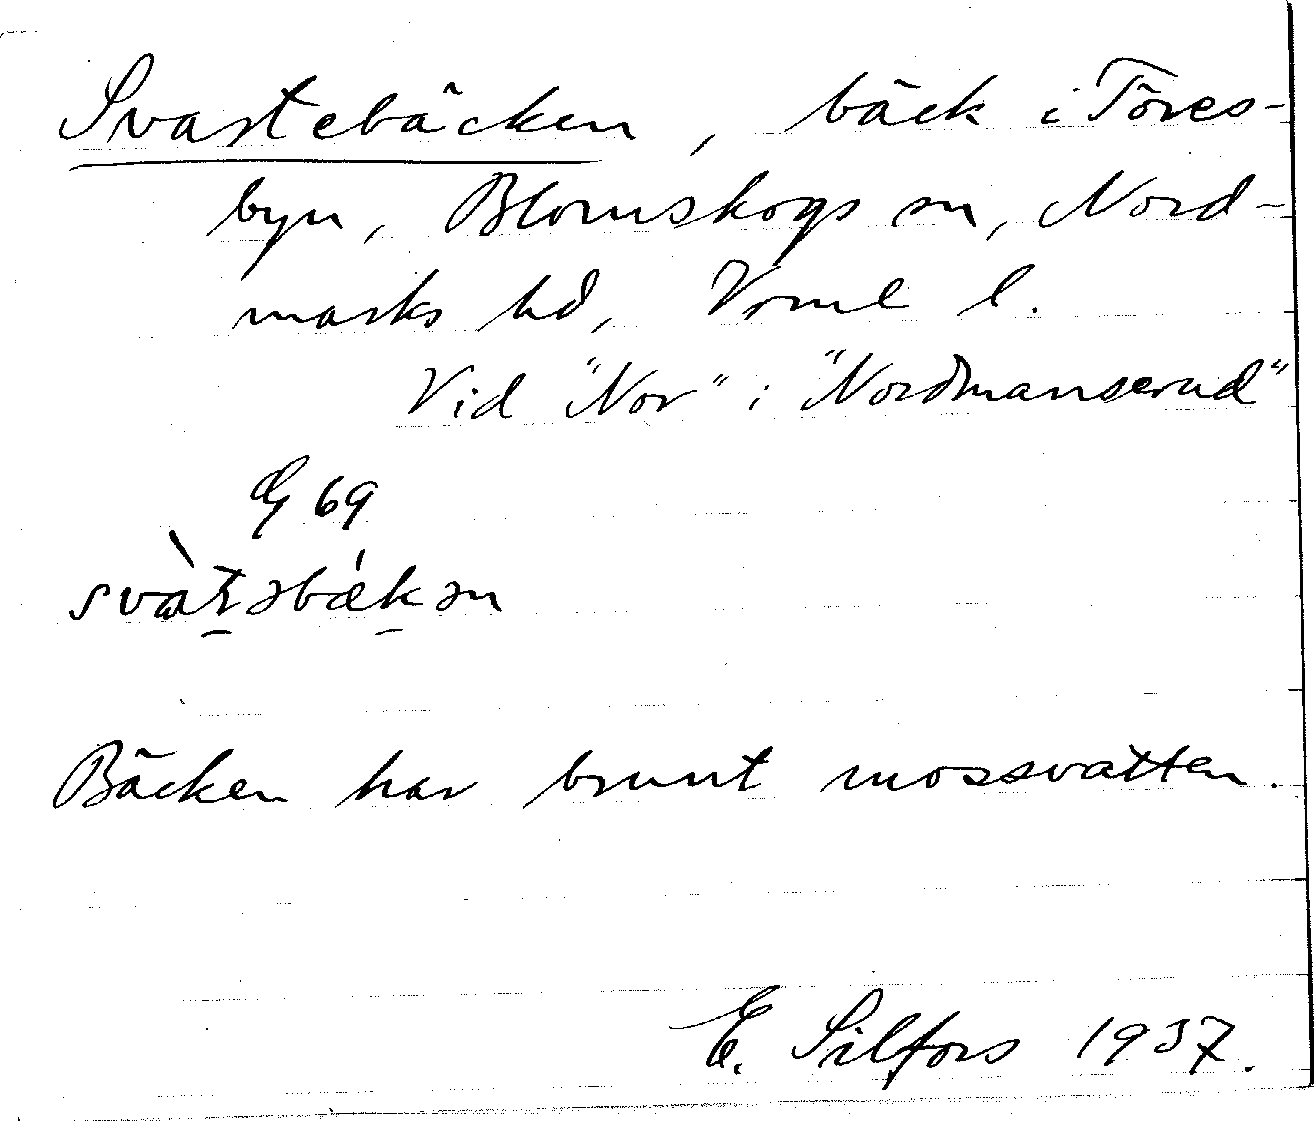 Svartebäcken, bäck i Töres-
byn, Blomskogs sn, Nord-
marks hd, Vrml l.
Vid "Nor" i "Nordmanserud"
G 69
svàt̠əbǽk̠ən
Bäcken har brunt mossvatten.
E. Silfors 1937.